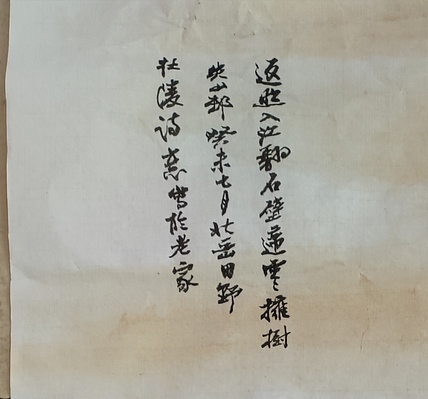 返照入江翻石壁雲擁樹
失山邨癸未七月北岳田野
杜陵詩意寫於老家